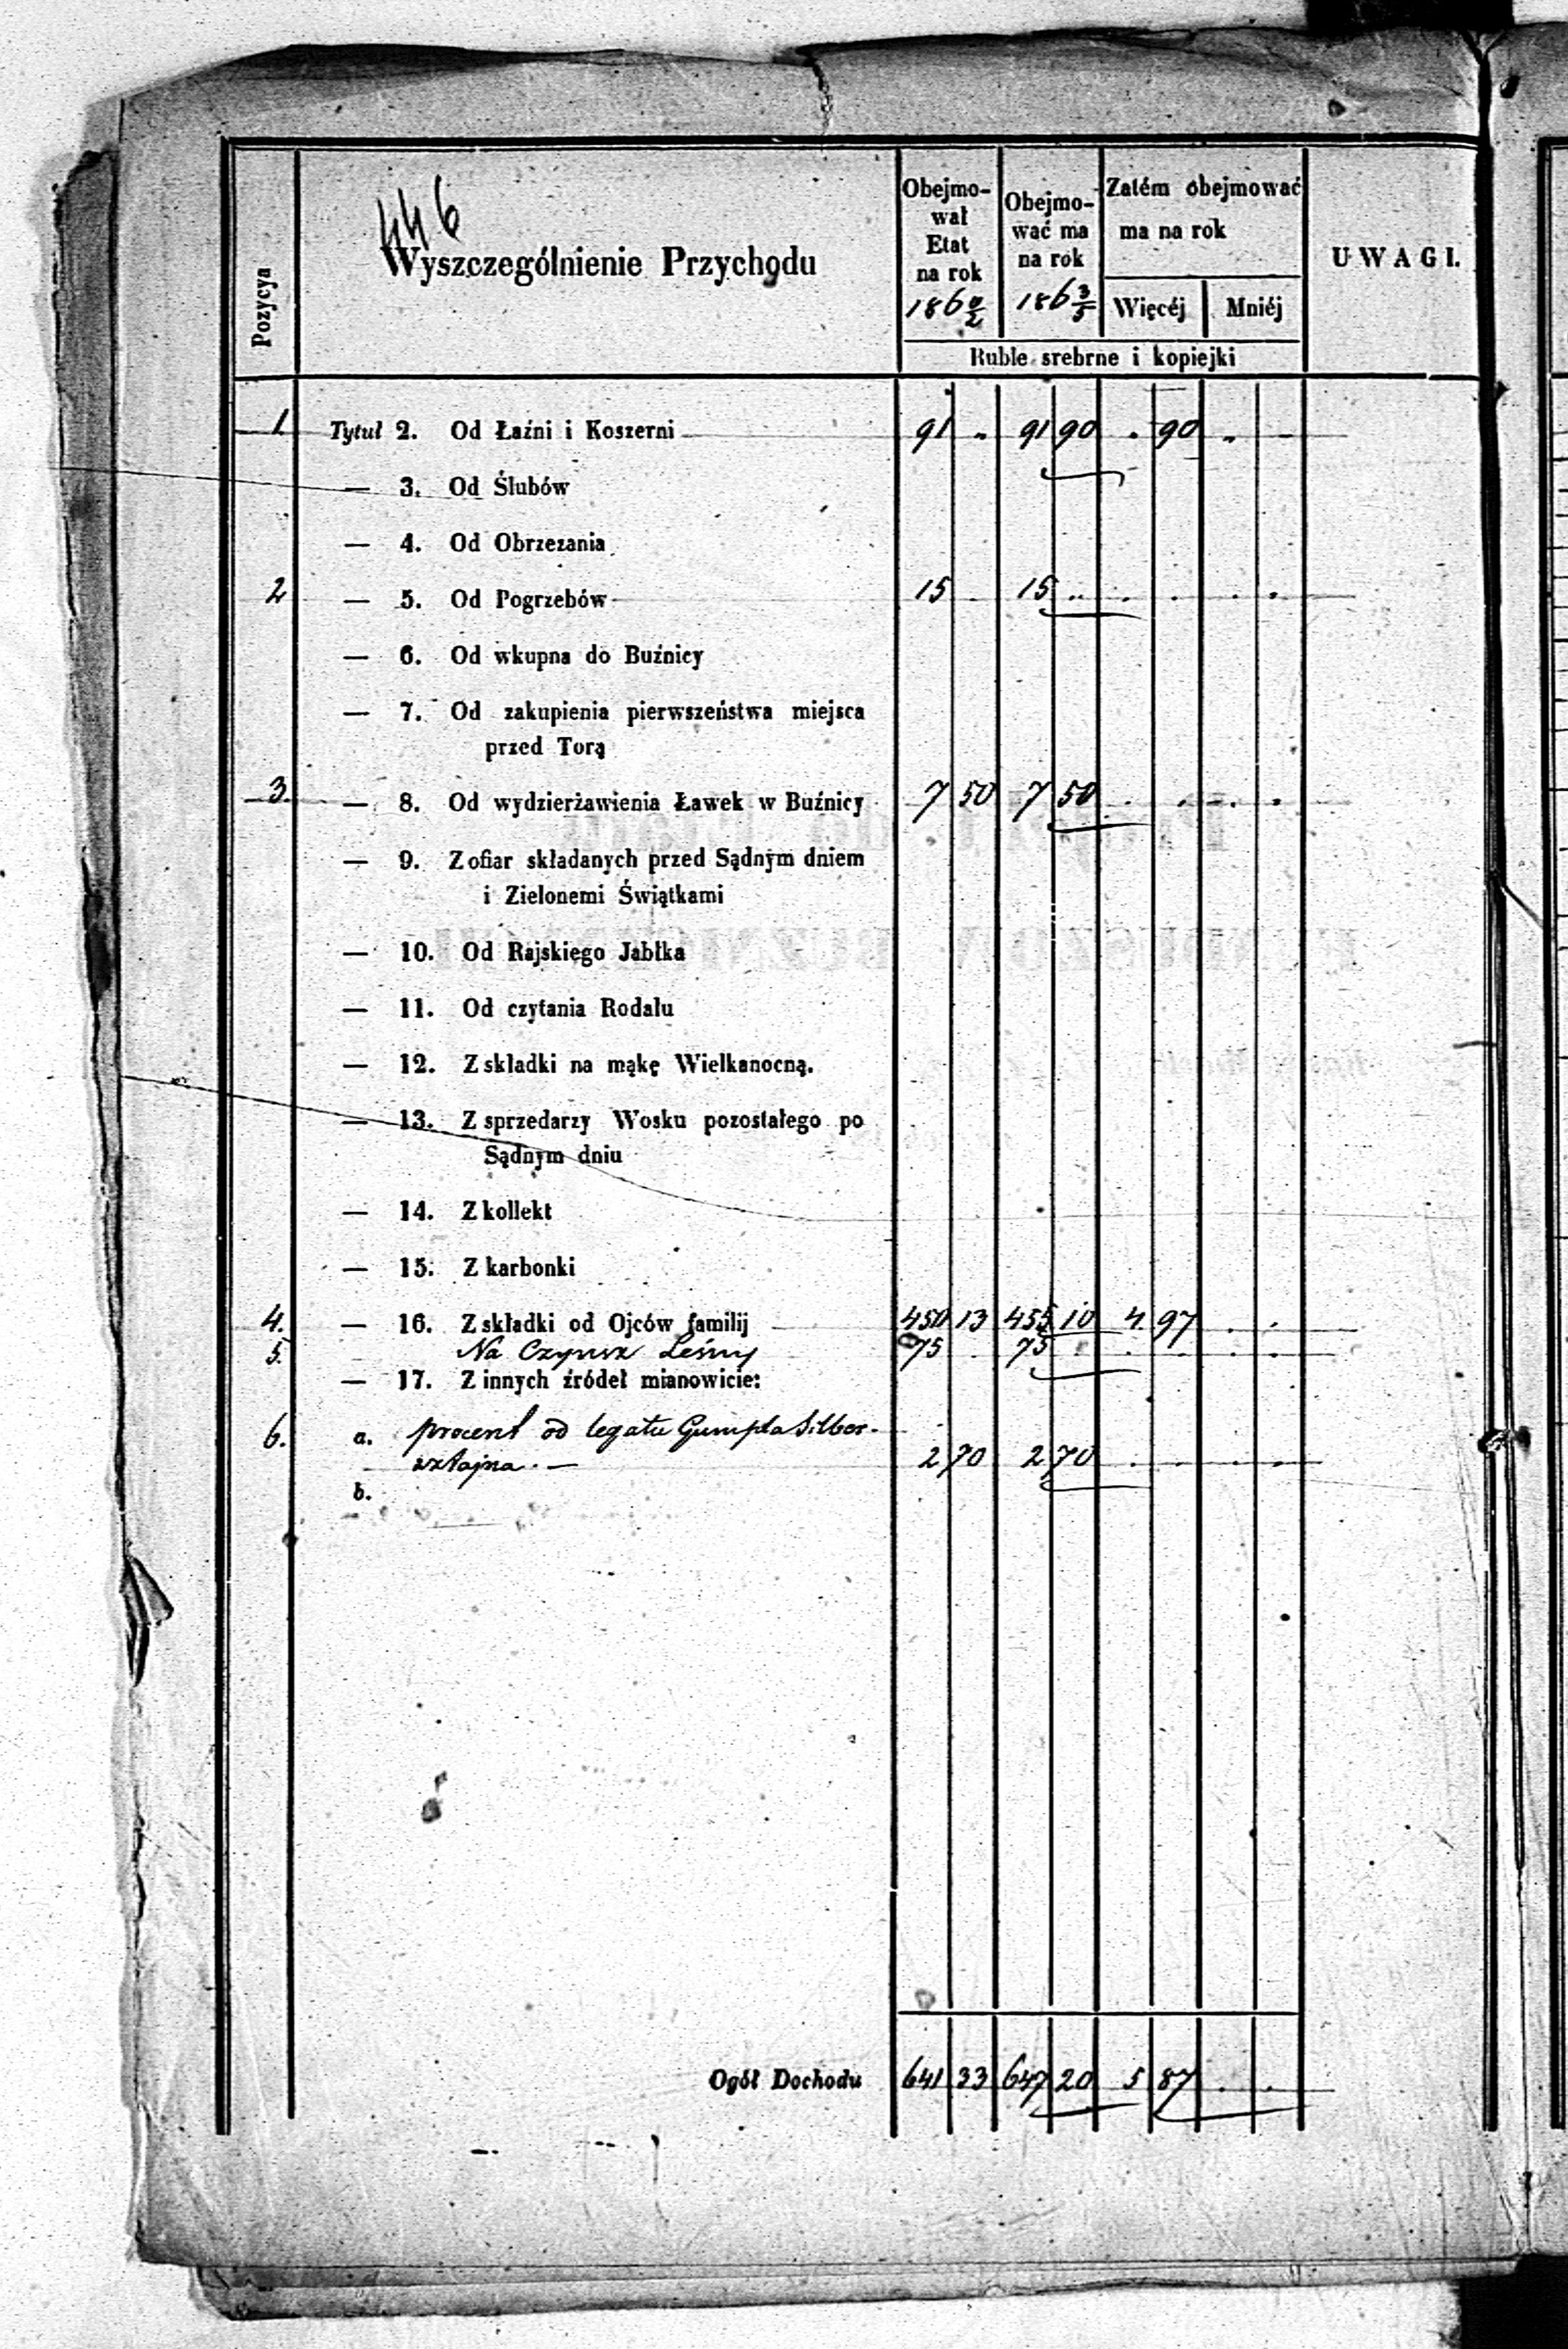 446
Pozycya
Wyszczególnienie Przychodu
Obejmo-
wał
Etat
na rok
186 0/2
Obejmo-
wać ma
na rok
186 3/5
Zatém obejmować
ma na rok
Więcéj Mniéj
UWAGI.
Ruble srebrne i kopiejki
1. Tytuł 2. Od Łaźni i Koszerni 91 „ 91 90 . 90 „ -
— 3. Od Ślubów
— 4. Od Obrzezania
2 — 5. Od Pogrzebów 15 . 15 .. . . . .
— 6. Od wkupna do Buźnicy
— 7. Od zakupienia pierwszeństwa miejsca
przed Torą
3. — 8. Od wydzierżawienia Ławek w Buźnicy 7 50 7 50 . . . .
— 9. Z ofiar składanych przed Sądnym dniem
i Zielonemi Świątkami
— 10. Od Rajskiego Jabłka
— 11. Od czytania Rodału
— 12. Z składki na mąkę Wielkanocną.
— 13. Z sprzedarzy Wosku pozostałego po
Sądnym dniu
— 14. Z kollekt
— 15. Z karbonki
4. — 16. Z składki od Ojców familij 450 13 455 10 4 97 . .
5. Na Czynsz Leśny 75 . 75 . . . . .
— 17. Z innych źródeł mianowicie:
6. a. procent od legatu Gumpla Silber-
sztajna. — 2 70 2 70 . . . .
b.
Ogół Dochodu 641 33 647 20 5 87 . .